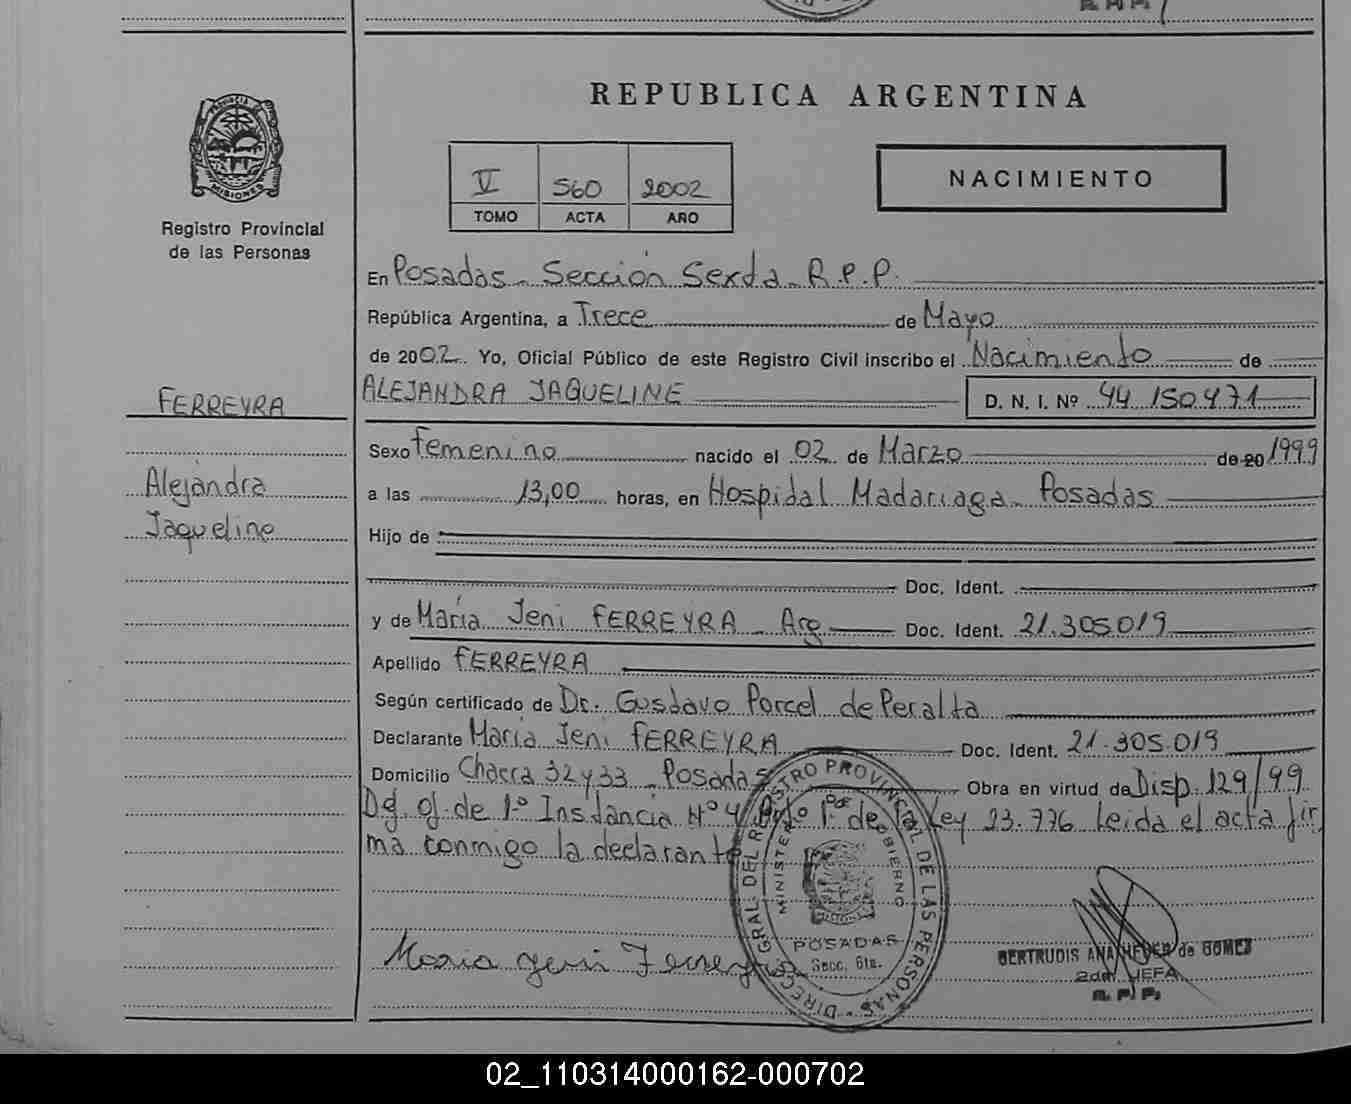 REPUBLICA ARGENTINA
PROVINCIA DE
MISIONES
Registro Provincial
de las Personas
V 560 2002
TOMO ACTA AÑO
NACIMIENTO
En Posadas - Sección Sexta - R.P.P.
República Argentina, a Trece de Mayo
de 2002. Yo, Oficial Público de este Registro Civil inscribo el Nacimiento de
ALEJANDRA JAQUELINE D. N. I. Nº 44 150.471
FERREYRA
Alejandra
Jaqueline
Sexo Femenino nacido el 02 de Marzo de 20 1999
a las 13,00 horas, en Hospital Madariaga - Posadas
Hijo de
Doc. Ident.
y de María Jeni FERREYRA - Arg. Doc. Ident. 21.305.019
Apellido FERREYRA
Según certificado de Dr. Gustavo Porcel de Peralta
Declarante María Jeni FERREYRA Doc. Ident. 21.305.019
Domicilio Chacra 32 y 33 - Posadas Obra en virtud de Disp. 129/99
Def. of. de 1º Instancia Nº 4 Arto 1º de la Ley 23.776 Leída el acta fir
ma conmigo la declarante
DIREC. GRAL. DEL REGISTRO PROVINCIAL DE LAS PERSONAS
MINISTERIO DE GOBIERNO
POSADAS
Secc. 6ta.
Maria Jeni Ferreyra
GERTRUDIS ANA de GOMEZ
2da. JEFA
R. P. P.
02_110314000162-000702